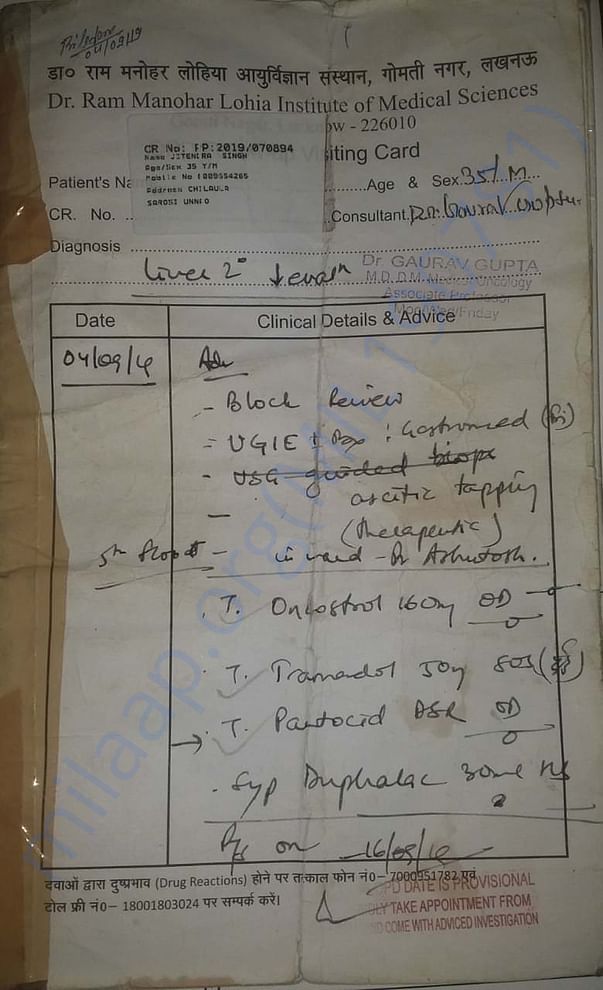 डा० राम मनोहर लोहिया आयुर्विज्ञान संस्थान, गोमती नगर, लखनऊ
Dr. Ram Manohar Lohia Institute of Medical Sciences
ow - 226010
CR No: PP:2019/070894
iting Card
Name JITENDRA SINGH
Age/Sex 35 Y/M
Mobile No
Address CHILAULA
SAROSI UNNAO
Patient's Na
Age & Sex. 35/M
CR. No. ..
Consultant. Dr. Gourav Gupta
Diagnosis
Dr. GAURAV GUPTA
M.D. D.M. Medical Oncology
Associate Professor
Mon/Wed/Friday
Liver 2° ↓ evalⁿ
Date
Clinical Details & Advice
04/09/19
Adv
- Block Review
- UGIE ± Bx : Gastromed
- USG guided biopsy
- ascitic tapping
(therapeutic)
5th floor - in ward - Dr Ashutosh.
T. Oncostrol 160mg OD
T. Tramadol 50mg SOS
→ T. Pantocid DSR OD
Syp Duphalac 30ml HS
R/s on 16/09/19
दवाओं द्वारा दुष्प्रभाव (Drug Reactions) होने पर तत्काल फोन नं०– 7000951782 एवं
टोल फ्री नं०– 18001803024 पर सम्पर्क करें।
PD DATE IS PROVISIONAL
TAKE APPOINTMENT FROM
D COME WITH ADVICED INVESTIGATION
milaap.org